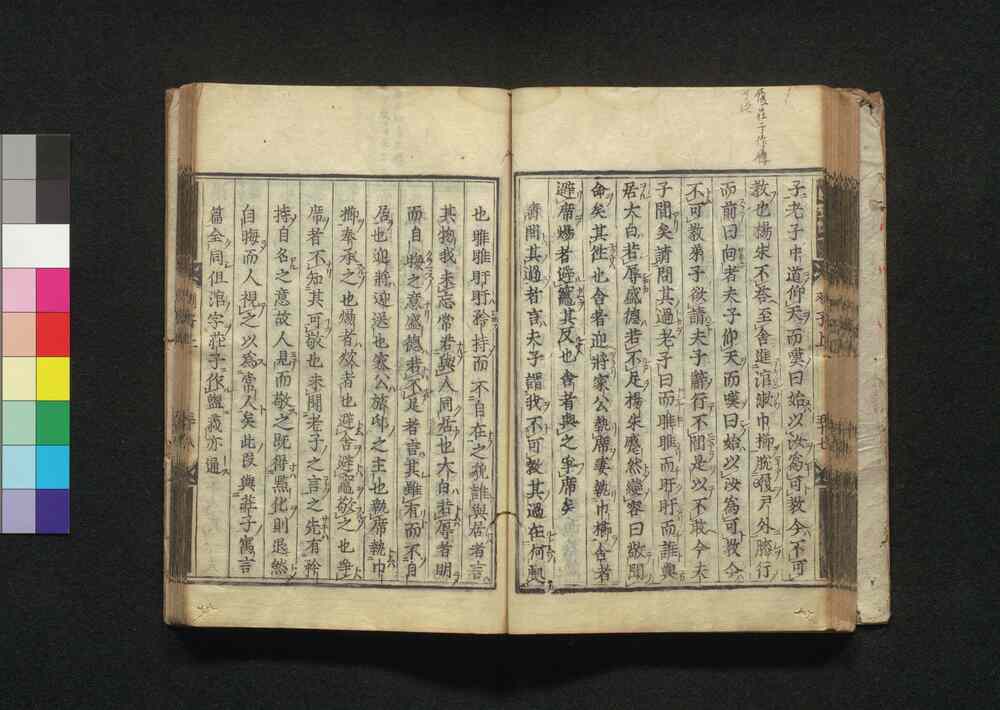 子老子中道仰天而嘆曰始以汝爲可教今不可
教也楊朱不荅至舍進涫漱巾櫛脫履戸外膝行
而前曰向者夫子仰天而嘆曰始以汝爲可教今
不可教弟子欲請夫子辭行不間是以不敢今夫
子間矣請問其過老子曰而睢睢而盱盱而誰與
居大白若辱盛德若不足楊朱蹵然變容曰敬聞
命矣其徃也舍者迎將家公執席妻執巾櫛舍者
避席煬者避竈其反也舍者與之爭席矣
請問其過者言夫子謂我不可教其過在何
也睢睢盱盱矜持而不自在之貌誰與居者言
其物我未忘常若與人同居也大白若辱者明
而自晦之意盛德若不足者言其雖有而不自
居也迎將迎送也家公旅邸之主也執席執巾
櫛奉承之也煬者炊者也避舍避竈敬之也爭
席者不知其可敬也未聞老子之言之先有矜
持自名之意故人見而敬之既得點化則退然
自晦而人視之以爲常人矣此段與莊子寓言
篇全同但涫字莊子作盥義亦通
莊子作